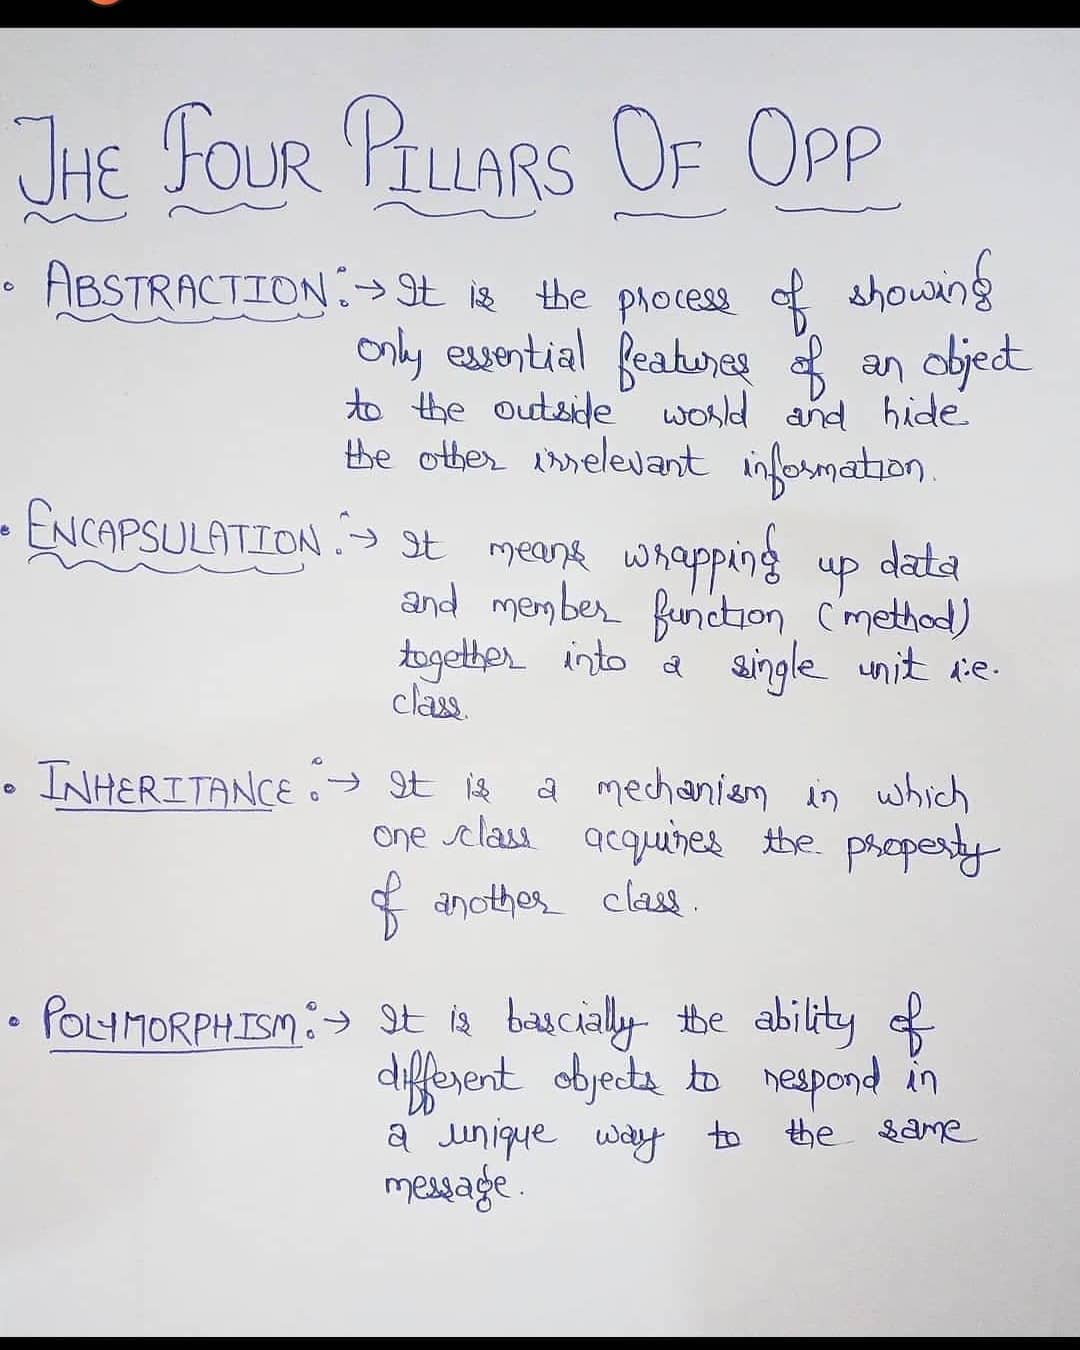 THE FOUR PILLARS OF OPP
• ABSTRACTION :→ It is the process of showing
only essential features of an object
to the outside world and hide
the other irrelevant information.
• ENCAPSULATION :→ It means wrapping up data
and member function (method)
together into a single unit i.e.
class.
• INHERITANCE :→ It is a mechanism in which
one class acquires the property
of another class.
• POLYMORPHISM :→ It is bascially the ability of
different objects to respond in
a unique way to the same
message.